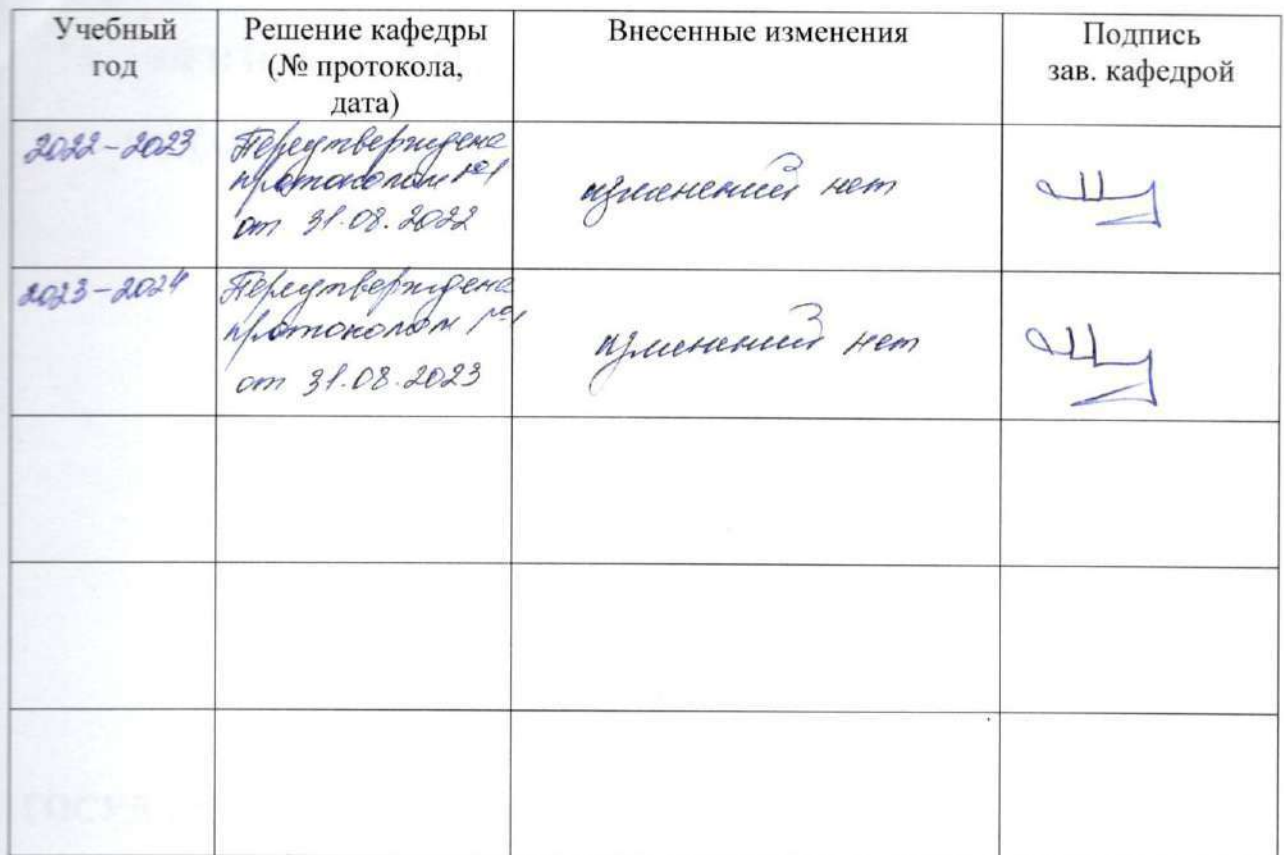 Учебный год
Решение кафедры (№ протокола, дата)
Внесенные изменения
Подпись зав. кафедрой
2022-2023
Переутверждена
протоколом №1
от 31.08.2022
изменений нет
2023-2024
Переутверждена
протоколом №1
от 31.08.2023
изменений нет